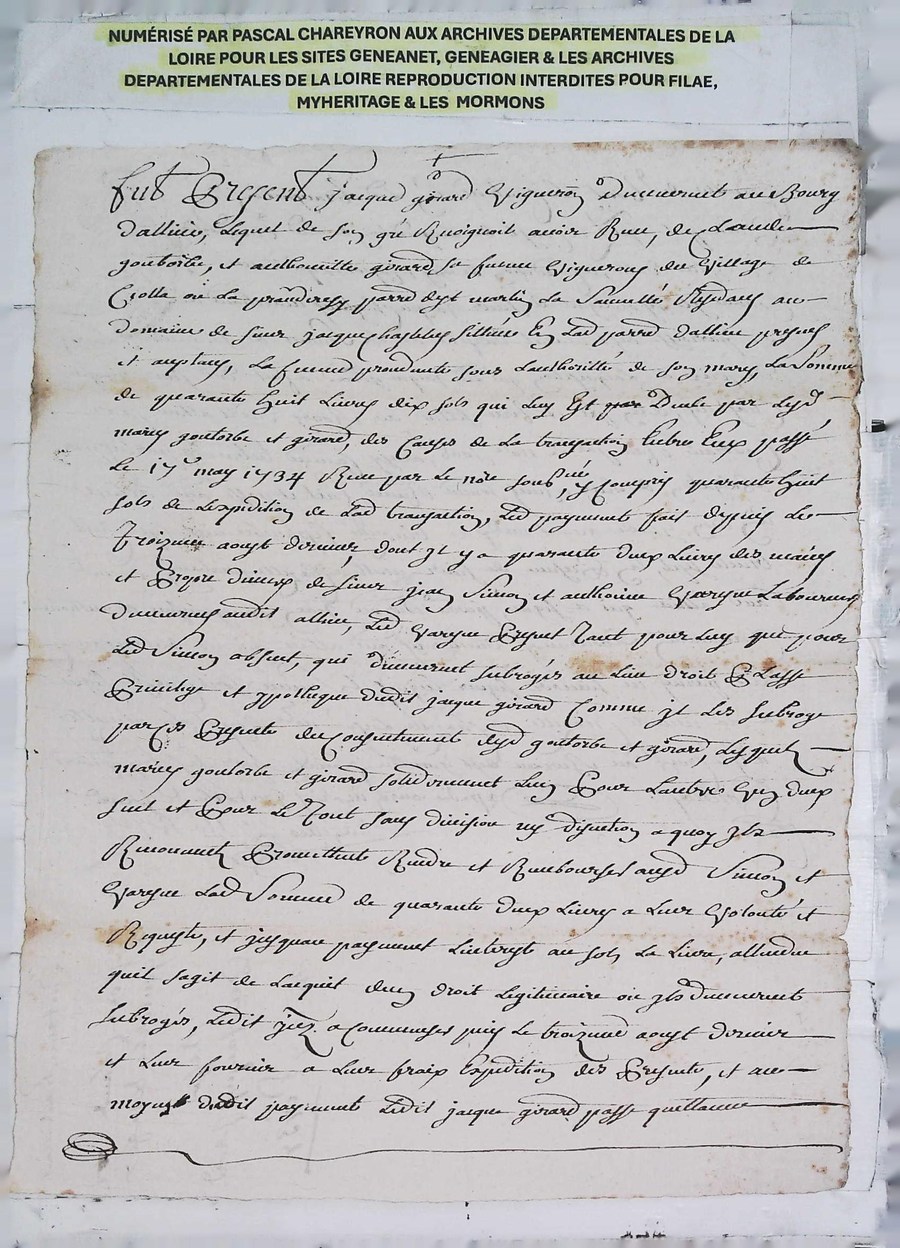 NUMÉRISÉ PAR PASCAL CHAREYRON AUX ARCHIVES DEPARTEMENTALES DE LA
LOIRE POUR LES SITES GENEANET, GENEAGIER & LES ARCHIVES
DEPARTEMENTALES DE LA LOIRE REPRODUCTION INTERDITES POUR FILAE,
MYHERITAGE & LES MORMONS
fut Present jacque girard Vigneron Demeurent au Bourg
dallieu, lequel de son gré Recognoit avoir Receu, de Claude
goutorbe, et anthoinette girard sa femme Vignerons du Village de
Crolla ou La parroisse dyt martin La Sauveté Residans au
domaine de sieur jacque en lad parroisse dallieu presens
et aceptans, La femme procedante sous Lauthorité de son mary, La Somme
de quarante huit Livres dix sols qui luy Est Deube par lesd
maries goutorbe et girard, des Causes de La transaction Entre Eux passé
le 17e may 1734 Receue par le nore soubsné y Compris quarante huit
sols de Lexpedition de lad transaction, led payement fait depuis le
troizieme aoust dernier, dont jl y a quarante deux Livres des mains
et Propre deniers de sieur jean Simon et anthoine Vareyne Laboureurs
demeurens audit allieu, led Vareyne Present Tant pour luy que pour
led Simon absent, qui demeurent subrogés au lieu droit Place
Privilege et ypotheque dudit jacque girard Comme jl les subroge
par ces Presente du Consentement desd goutorbe et girard, lesquels
maries goutorbe et girard solidairement Lun Pour Lautre Un deux
seul et Pour Le Tout sans division ny discution a quoy jls
Renoncent Promettent Rendre et Rembourser ausd Simon et
Vareyne lad Somme de quarante deux Livres a leur Volonté et
Requeste, et jusquau payement Linterest au sols La Livre, attendu
quil sagit de Lacquit dun droit Legitimaire ou jls demeurent
subrogés, ledit a Commenser puis le troizieme aoust dernier
et leur fournir a leur fraix Expedition des Presente, et au
moyens dudit payement ledit jacque girard passe quittance